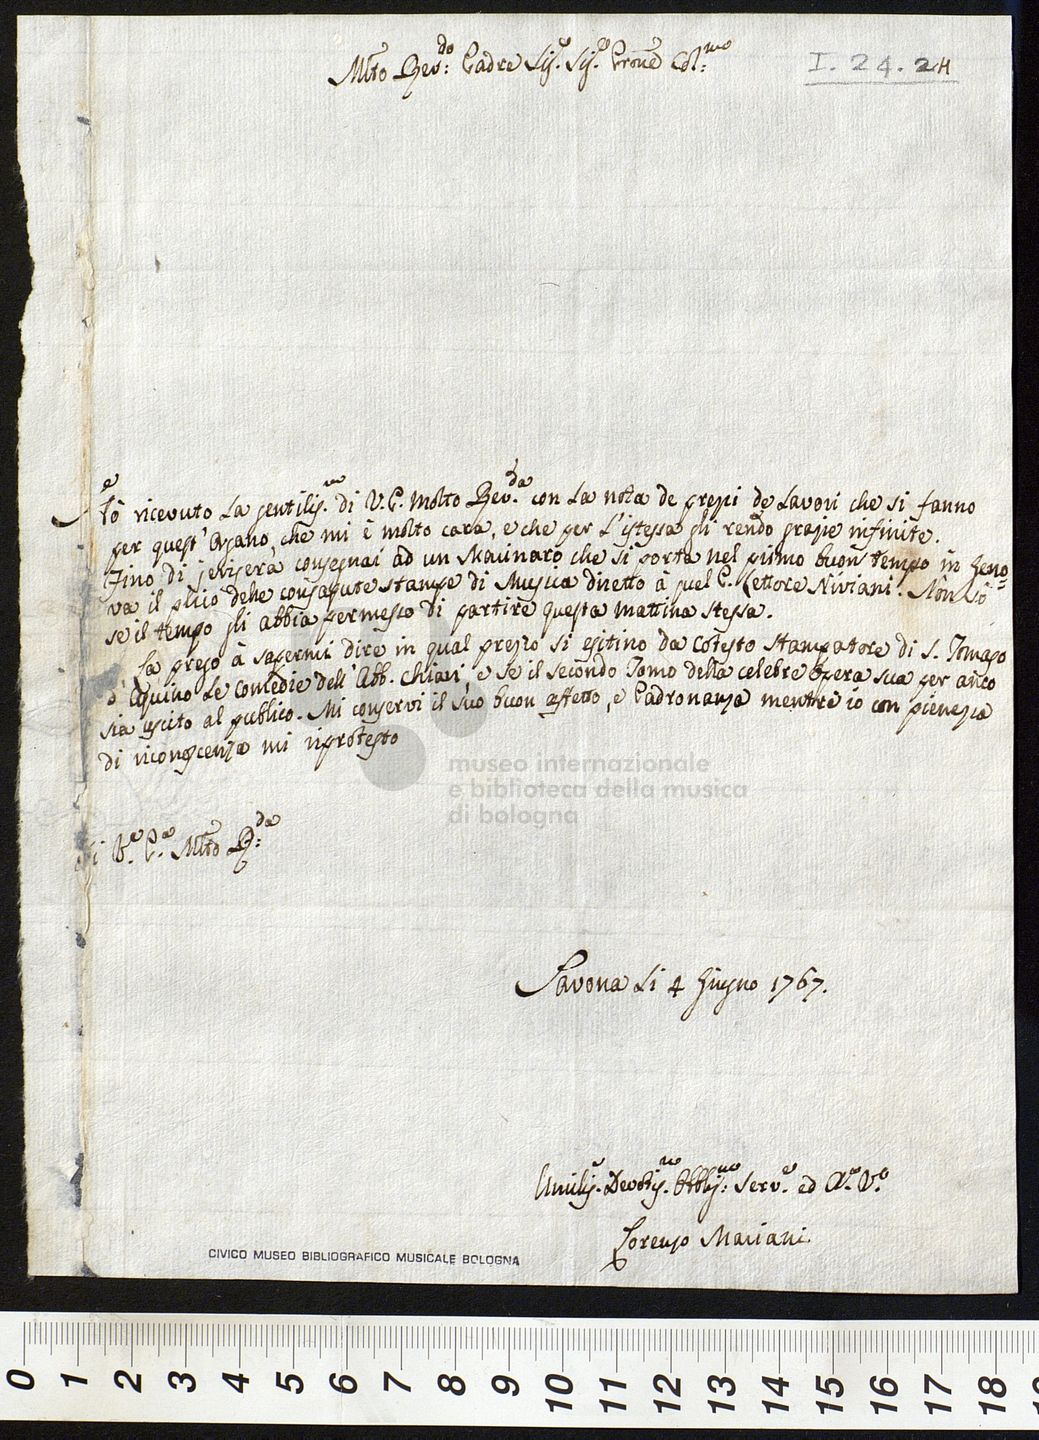 Mlto Rev:do Padre Sig.e Sig.e Prone Col:mo
I. 24. 24
Hò ricevuto la gentilis.ma di V. P. Molto Rev.da con la nota de prezzi de Lavori che si fanno
per quest' Organo, che mi è molto cara, e che per l'istessa gli rendo grazie infinite.
Fino di jerisera consegnai ad un Marinaro che si porta nel primo buon tempo in Geno-
va il plico delle consapute stampe di Musica diretto à quel P. Lettore Niviani. Non sò
se il tempo gli abbia permesso di partire questa mattina stessa.
La prego à sapermi dire in qual prezzo si esitino da cotesto stampatore di S. Tomaso
d' Aquino le Comedie dell' Abb. Chiari, e se il secondo Tomo della celebre Opera sua per anco
sia uscito al publico. Mi conservi il suo buon affetto, e Padronanza mentre io con pienezza
di riconoscenza mi riprotesto
museo internazionale
e biblioteca della musica
di bologna
Di V.a P.a Mlto R:da
Savona li 4 Giugno 1767.
Umilis.e Devotis.mo Obblig:mo Serv.e ed A.o V.o
Lorenzo Mariani
CIVICO MUSEO BIBLIOGRAFICO MUSICALE BOLOGNA
0 1 2 3 4 5 6 7 8 9 10 11 12 13 14 15 16 17 18